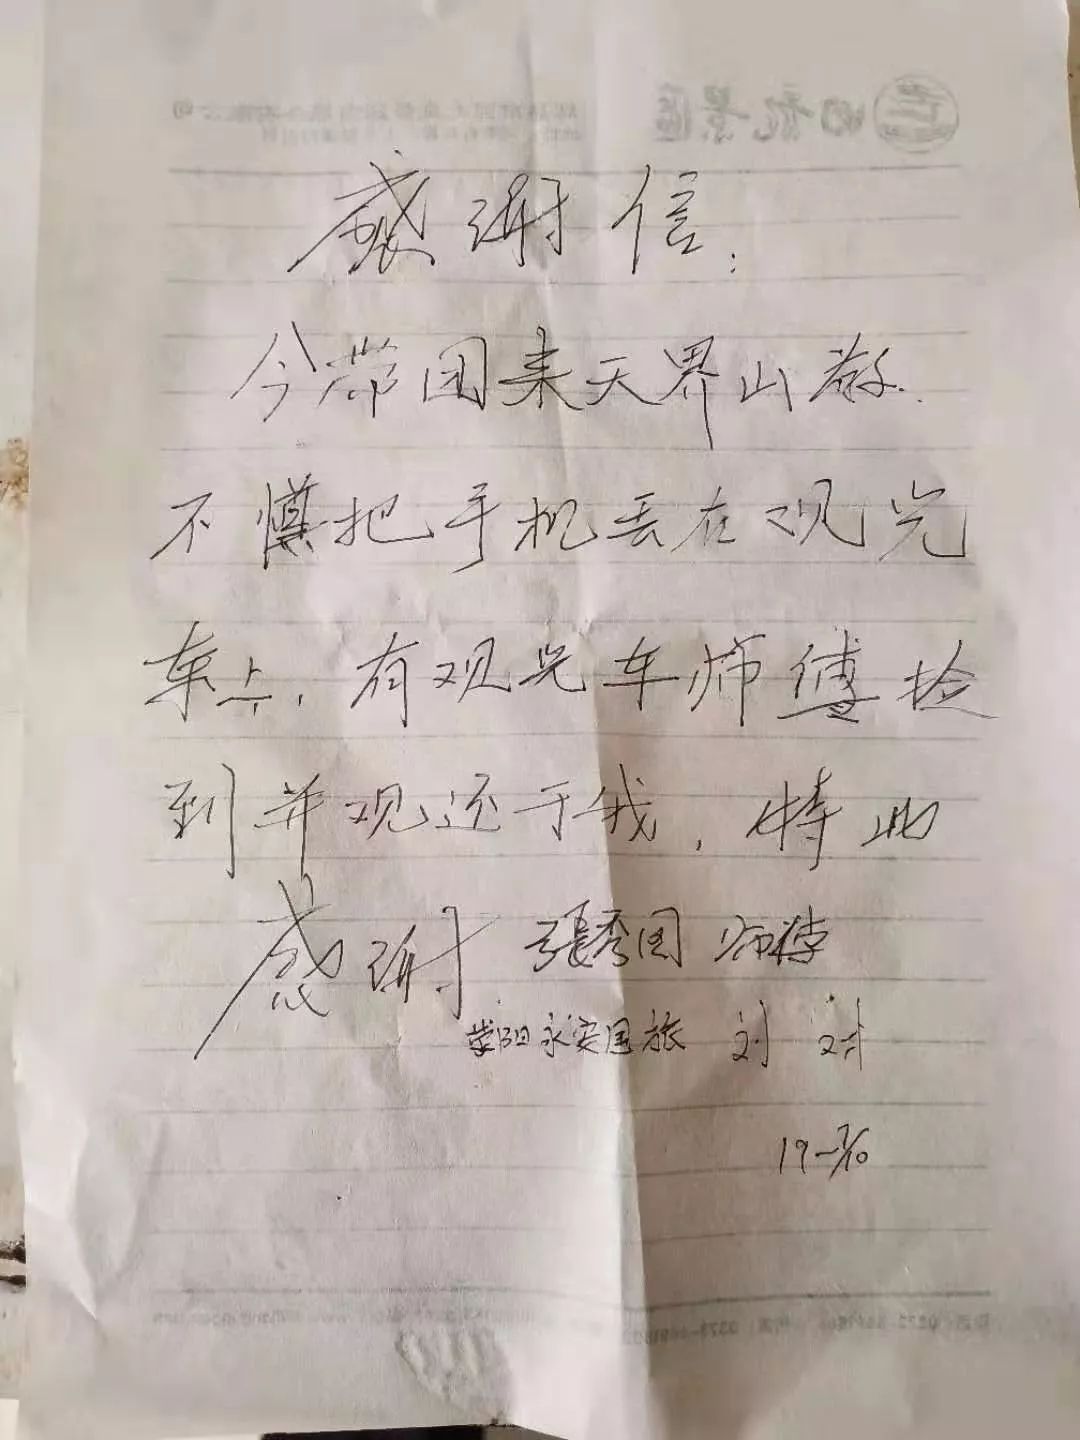 感谢信:
今带团来天界山游.
不慎把手机丢在观光
车上,有观光车师傅捡
到并观还于我,特此
感谢 張秀国 师傅
荥阳永安国旅 刘
19-7/10